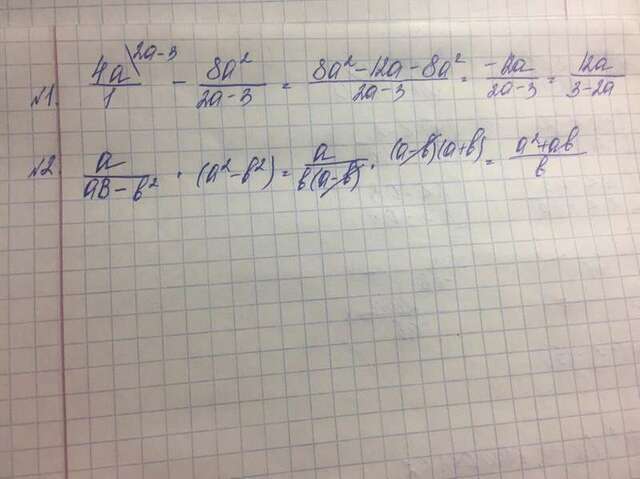 №1. 4a^{2a-3}/1 - 8a²/(2a-3) = (8a²-12a-8a²)/(2a-3) = -12a/(2a-3) = 12a/(3-2a)
№2. a/(aB-b²) · (a²-b²) = a/(b(a-b)) · (a-b)(a+b) = (a²+ab)/b